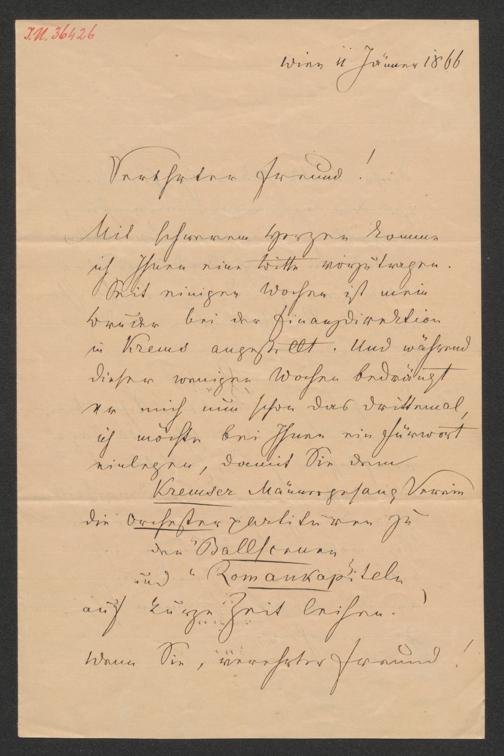 I.N. 36426
Wien 11 Jänner 1866
Verehrter Freund!
Mit schwerem Herzen komme
ich Ihnen eine Bitte vorzutragen.
Seit einigen Wochen ist mein
Bruder bei der Finanzdirektion
in Krems angestellt. Und während
dieser wenigen Wochen bedrängt
er mich nun schon das drittemal,
ich möchte bei Ihnen ein Fürwort
einlegen, damit Sie dem
Kremser Männergesang Verein
die Orchesterpartituren zu
den "Ballscenen
und "Romankapiteln
auf kurze Zeit leihen.
Wenn Sie, verehrter Freund!